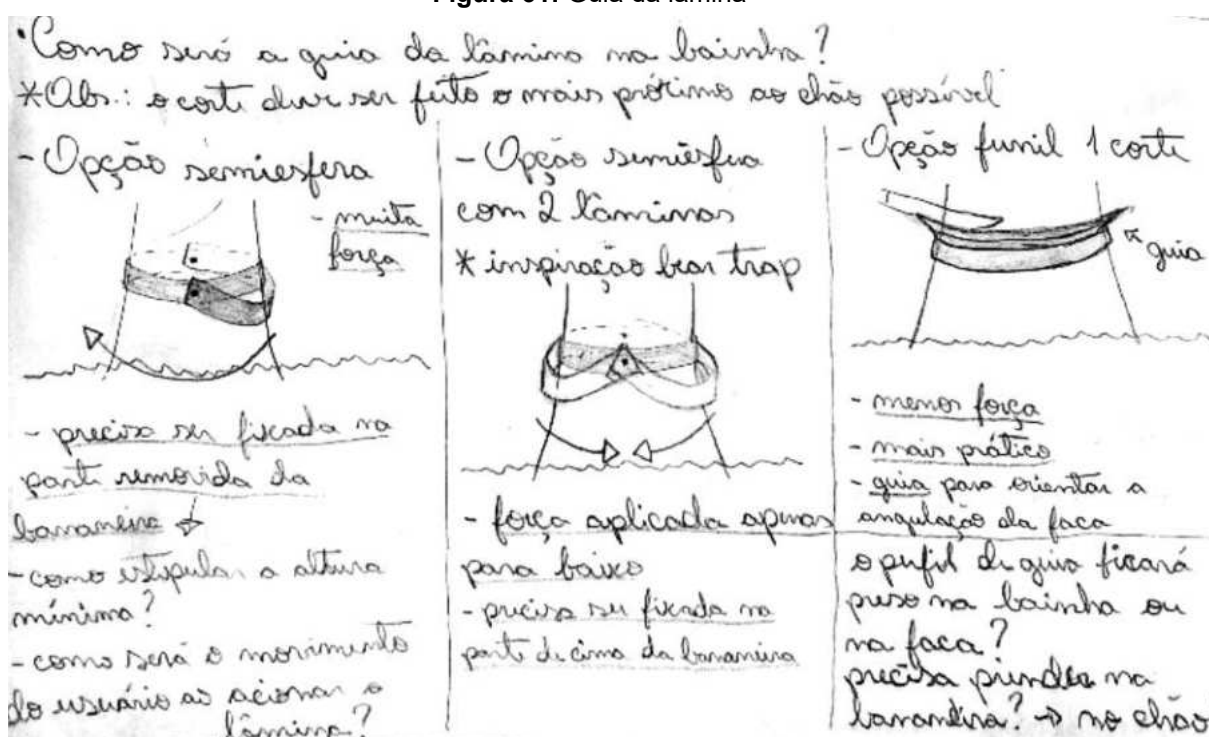 Guia da lâmina
• Como será a guia da lâmina na bainha?
* Obs.: o corte deve ser feito o mais próximo ao chão possível
- Opção semiesfera
- muita
força
- precisa ser fixada na
parte removida da
bananeira
- como estipular a altura
mínima?
- como será o movimento
do usuário ao acionar a
lâmina?
- Opção semiesfera
com 2 lâminas
* inspiração bear trap
- força aplicada apenas
para baixo
- precisa ser fixada na
parte de cima da bananeira
- Opção funil 1 corte
guia
- menor força
- mais prático
- guia para orientar a
angulação da faca
o perfil de guia ficará
preso na bainha ou
na faca?
precisa prender na
bananeira? → no chão